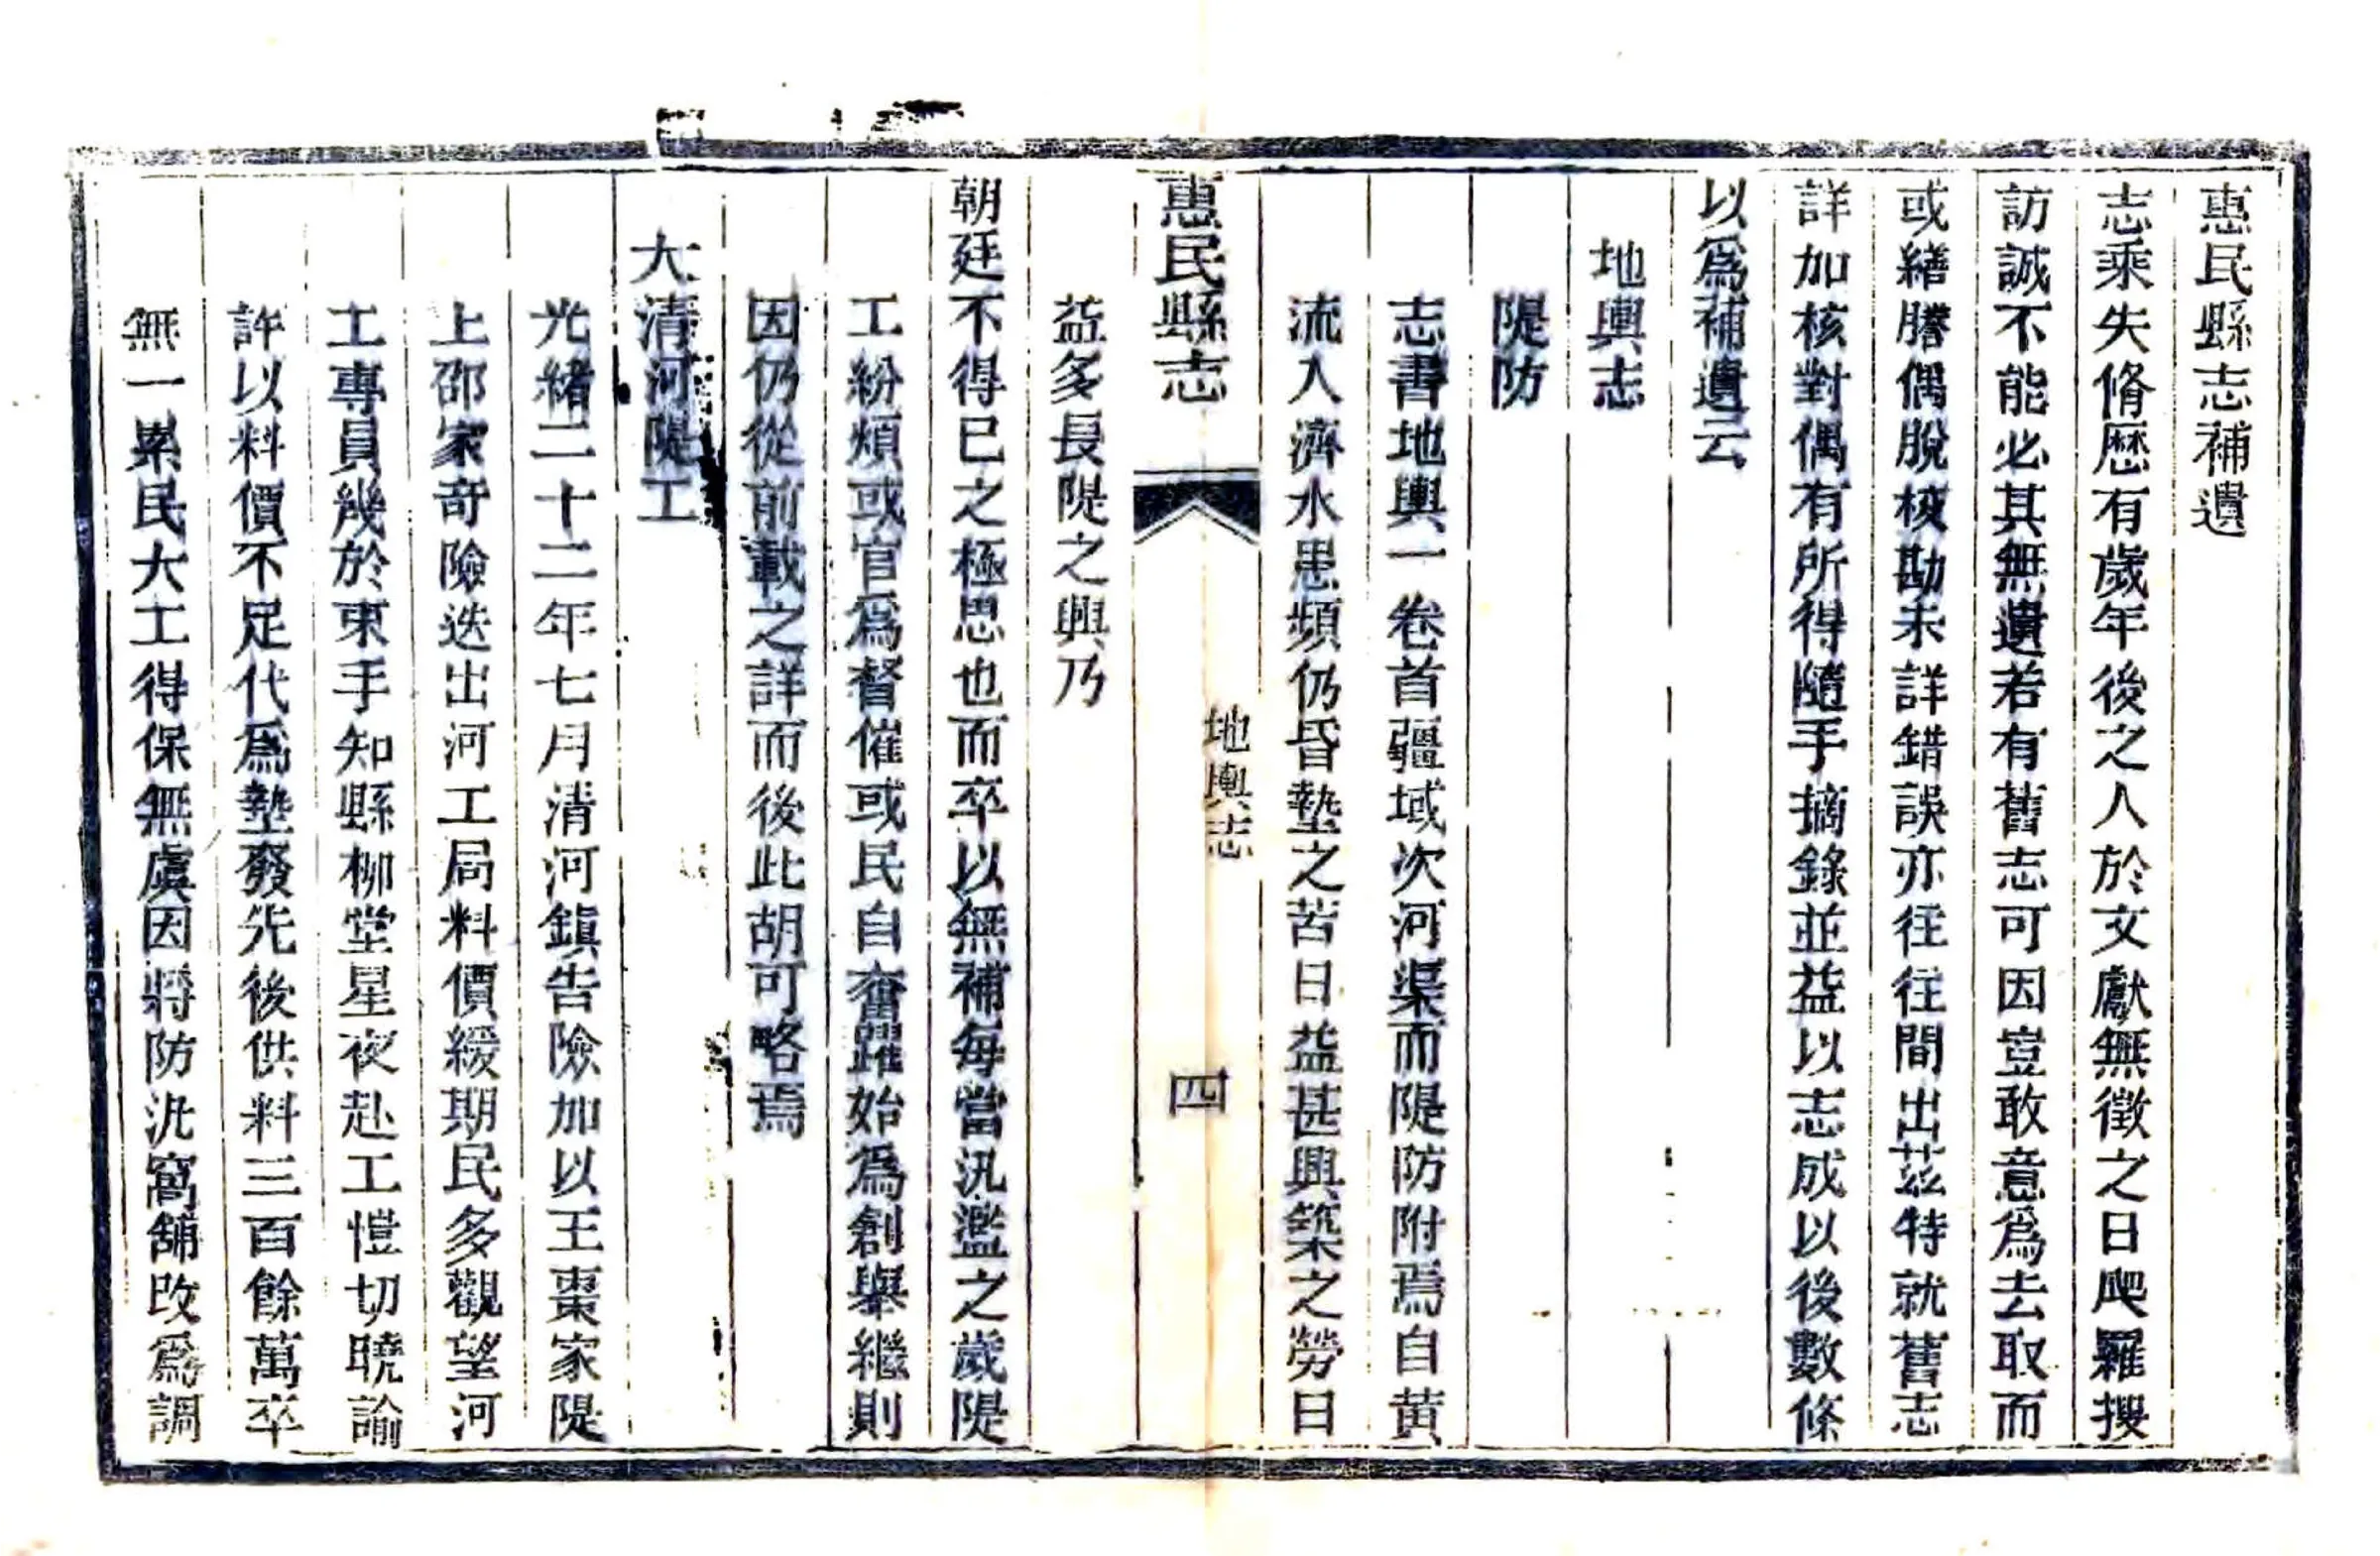 惠民縣志補遺
志乘失脩歷有歲年後之人於文獻無徵之日爬羅搜
訪誠不能必其無遺若有舊志可因豈敢意爲去取而
或繕謄偶脫核勘未詳錯誤亦往往間出茲特就舊志
詳加核對偶有所得隨手摘錄並益以志成以後數條
以爲補遺云
地輿志
隄防
志書地輿一卷首疆域次河渠而隄防附焉自黃
流入濟水患頻仍昏墊之苦日益甚興築之勞日
惠民縣志
地輿志
四
益多長隄之興乃
朝廷不得已之極思也而卒以無補每當汎濫之歲隄
工紛煩或官爲督催或民自奮躍始爲創舉繼則
因仍從前載之詳而後此胡可略焉
大清河隄工
光緒二十二年七月清河鎮告險加以王棗家隄
上邵家奇險迭出河工局料價緩期民多觀望河
工專員幾於束手知縣柳堂星夜赴工愷切曉諭
許以料價不足代爲墊發先後供料三百餘萬卒
無一累民大工得保無虞因將防汛窩舖改爲調